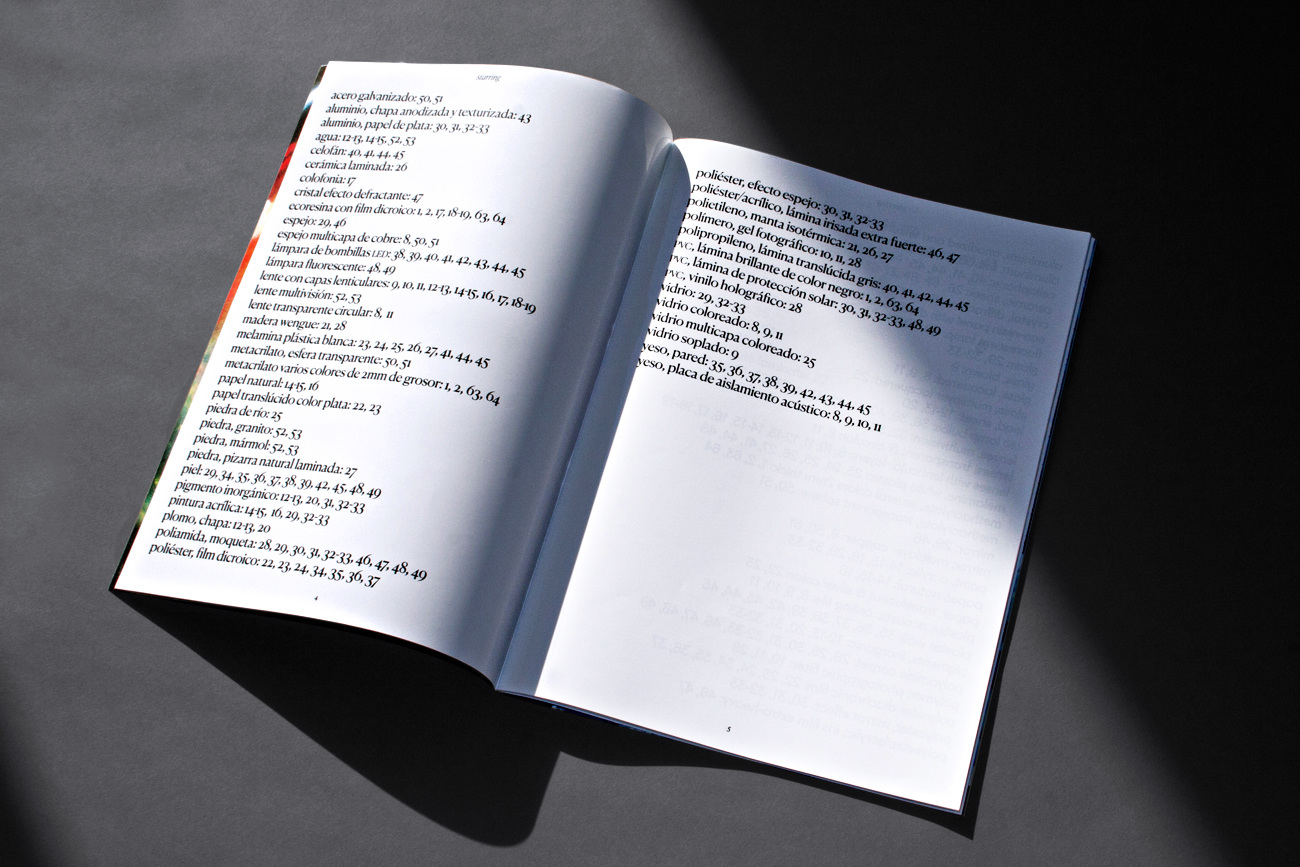 starring
acero galvanizado: 50, 51
aluminio, chapa anodizada y texturizada: 43
aluminio, papel de plata: 30, 31, 32-33
agua: 12-13, 14-15, 52, 53
celofán: 40, 41, 44, 45
cerámica laminada: 26
colofonia: 17
cristal efecto defractante: 47
ecoresina con film dicroico: 1, 2, 17, 18-19, 63, 64
espejo: 29, 46
espejo multicapa de cobre: 8, 50, 51
lámpara de bombillas LED: 38, 39, 40, 41, 42, 43, 44, 45
lámpara fluorescente: 48, 49
lente con capas lenticulares: 9, 10, 11, 12-13, 14-15, 16, 17, 18-19
lente multivisión: 52, 53
lente transparente circular: 8, 11
madera wengue: 21, 28
melamina plástica blanca: 23, 24, 25, 26, 27, 41, 44, 45
metacrilato, esfera transparente: 50, 51
metacrilato varios colores de 2mm de grosor: 1, 2, 63, 64
papel natural: 14-15, 16
papel translúcido color plata: 22, 23
piedra de río: 25
piedra, granito: 52, 53
piedra, mármol: 52, 53
piedra, pizarra natural laminada: 27
piel: 29, 34, 35, 36, 37, 38, 39, 42, 45, 48, 49
pigmento inorgánico: 12-13, 20, 31, 32-33
pintura acrílica: 14-15, 16, 29, 32-33
plomo, chapa: 12-13, 20
poliamida, moqueta: 28, 29, 30, 31, 32-33, 46, 47, 48, 49
poliéster, film dicroico: 22, 23, 24, 34, 35, 36, 37
4
poliéster, efecto espejo: 30, 31, 32-33
poliéster/acrílico, lámina irisada extra fuerte: 46, 47
polietileno, manta isotérmica: 21, 26, 27
polímero, gel fotográfico: 10, 11, 28
polipropileno, lámina translúcida gris: 40, 41, 42, 44, 45
PVC, lámina brillante de color negro: 1, 2, 63, 64
PVC, lámina de protección solar: 30, 31, 32-33, 48, 49
PVC, vinilo holográfico: 28
vidrio: 29, 32-33
vidrio coloreado: 8, 9, 11
vidrio multicapa coloreado: 25
vidrio soplado: 9
yeso, pared: 35, 36, 37, 38, 39, 42, 43, 44, 45
yeso, placa de aislamiento acústico: 8, 9, 10, 11
5